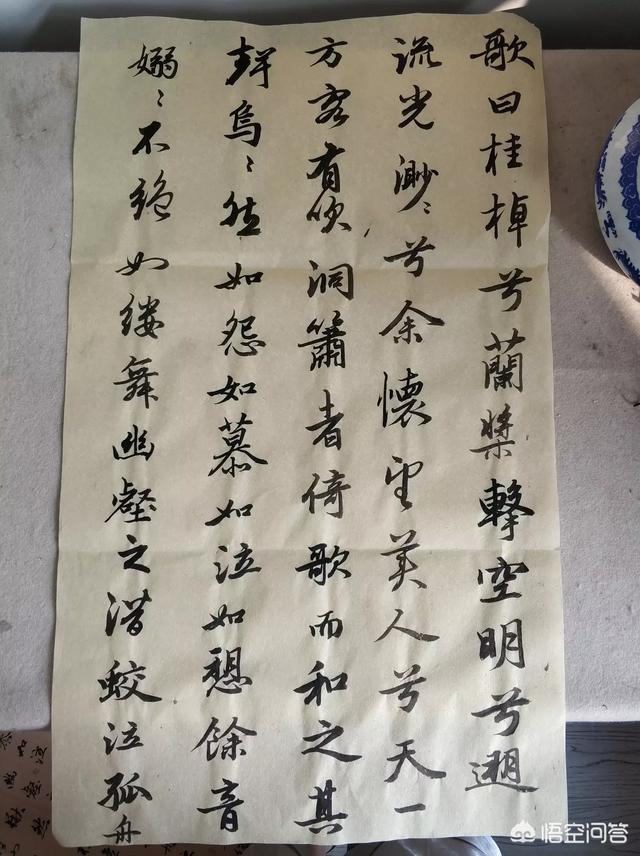 歌曰桂棹兮蘭槳擊空明兮遡
流光渺〻兮余懷望美人兮天一
方客有吹洞簫者倚歌而和之其
聲烏〻然如怨如慕如泣如愬餘音
嫋〻不絕如縷舞幽壑之潛蛟泣孤舟
悟空问答